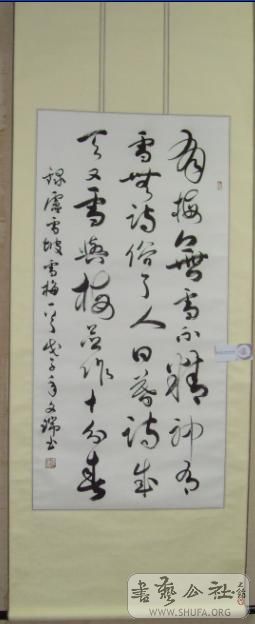 有梅無雪不精神有
雪無詩俗了人日暮詩成
天又雪與梅並作十分春
錄盧雪坡雪梅一首戊子年文瑞書
書藝公社
WWW.SHUFA.ORG